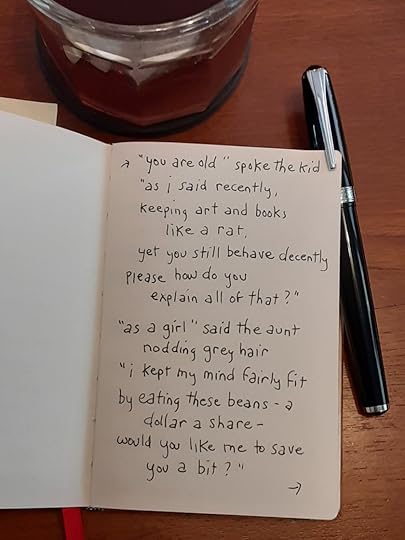 → "you are old" spoke the kid
"as i said recently,
keeping art and books
like a rat,
yet you still behave decently
please how do you
explain all of that?"
"as a girl" said the aunt
nodding grey hair
"i kept my mind fairly fit
by eating these beans - a
dollar a share -
would you like me to save
you a bit?"
→